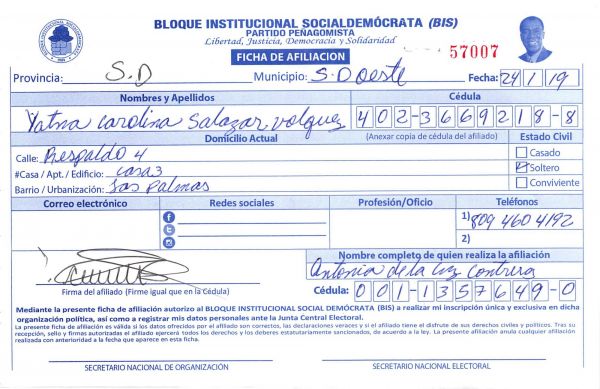 BLOQUE INSTITUCIONAL SOCIALDEMÓCRATA (BIS)
PARTIDO PEÑAGOMISTA
Libertad, Justicia, Democracia y Solidaridad
FICHA DE AFILIACION
57007
Provincia: S.D Municipio: S.D oeste Fecha: 24/1/19
Nombres y Apellidos Cédula
Yatna Carolina Salazar Volquez 402-3669218-8
Domicilio Actual (Anexar copia de cédula del afiliado) Estado Civil
Calle: Respaldo 4 Casado
#Casa / Apt. / Edificio: casa3 Soltero
Barrio / Urbanización: Las Palmas Conviviente
Correo electrónico Redes sociales Profesión/Oficio Teléfonos
1) 809 460 4192
2)
Nombre completo de quien realiza la afiliación
Antonia de la Cruz Contrera
Firma del afiliado (Firme igual que en la Cédula) Cédula: 001-1357649-0
Mediante la presente ficha de afiliación autorizo al BLOQUE INSTITUCIONAL SOCIAL DEMÓCRATA (BIS) a realizar mi inscripción única y exclusiva en dicha
organización política, así como a registrar mis datos personales ante la Junta Central Electoral.
La presente ficha de afiliación es válida si los datos ofrecidos por el afiliado son correctos, las declaraciones veraces y si el afiliado tiene el disfrute de sus derechos civiles y políticos. Tras su
recepción, sello y firmas autorizadas el afiliado ejercerá todos los derechos y los deberes estatutariamente sancionados, de acuerdo a la ley. La presente afiliación anula cualquier afiliación
realizada con anterioridad a la fecha que aparece en esta ficha.
SECRETARIO NACIONAL DE ORGANIZACIÓN SECRETARIO NACIONAL ELECTORAL